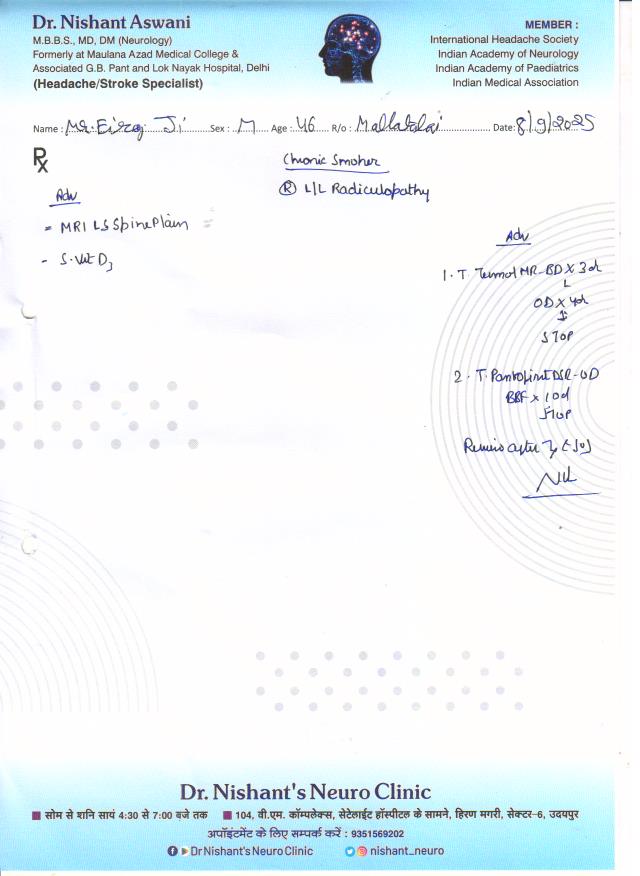 Dr. Nishant Aswani
M.B.B.S., MD, DM (Neurology)
Formerly at Maulana Azad Medical College &
Associated G.B. Pant and Lok Nayak Hospital, Delhi
(Headache/Stroke Specialist)
MEMBER :
International Headache Society
Indian Academy of Neurology
Indian Academy of Paediatrics
Indian Medical Association
Name : Mr. Ji Sex : M Age : 46 R/o : Date: 8/9/2025
Rx
Chronic Smoker
(R) L/L Radiculopathy
Adv
- MRI LS Spine Plain
- S. Vit D3
Adv
1. T. MR-BD X 3d
↓
OD X 4d
↓
STOP
2. T. DSR-OD
BBF x 10d
STOP
after
Dr. Nishant's Neuro Clinic
सोम से शनि सायं 4:30 से 7:00 बजे तक 104, वी.एम. कॉम्पलेक्स, सेटेलाईट हॉस्पीटल के सामने, हिरण मगरी, सेक्टर-6, उदयपुर
अपॉइंटमेंट के लिए सम्पर्क करें : 9351569202
Dr Nishant's Neuro Clinic nishant_neuro